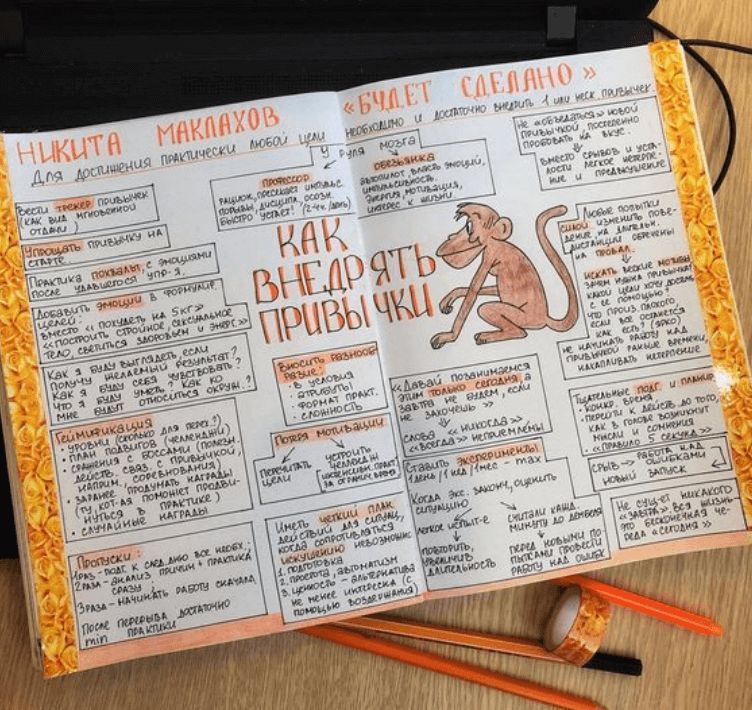 НИКИТА МАКЛАХОВ «БУДЕТ СДЕЛАНО»
ДЛЯ ДОСТИЖЕНИЯ ПРАКТИЧЕСКИ ЛЮБОЙ ЦЕЛИ НЕОБХОДИМО И ДОСТАТОЧНО ВНЕДРИТЬ 1 ИЛИ НЕСК. ПРИВЫЧЕК.
У РУЛЯ МОЗГА
ПРОФЕССОР
РАЦИОН, ПРЕСЕЦАЕТ ИМПУЛЬС.
ПОРЫВЫ, ДИСЦИПЛ, ОСОЗН.
БЫСТРО УСТАЕТ! (2-4ч./ДЕНЬ)
ОБЕЗЬЯНКА
АВТОПИЛОТ, ВЛАСТЬ ЭМОЦИЙ,
ИМПУЛЬСИВНОСТЬ.
ЭНЕРГИЯ, МОТИВАЦИЯ,
ИНТЕРЕС К ЖИЗНИ.
ВЕСТИ ТРЕКЕР ПРИВЫЧЕК
(КАК ВИД МГНОВЕННОЙ
ОТДАЧИ)
УПРОЩАТЬ ПРИВЫЧКУ НА
СТАРТЕ.
ПРАКТИКА ПОХВАЛЫ, С ЭМОЦИЯМИ
ПОСЛЕ УДАВШЕГОСЯ УПР-Я.
ДОБАВИТЬ ЭМОЦИИ В ФОРМУЛИР.
ЦЕЛЕЙ:
ВМЕСТО «ПОХУДЕТЬ НА 5 КГ»
«ПОСТРОИТЬ СТРОЙНОЕ, СЕКСУАЛЬНОЕ
ТЕЛО, СВЕТИТЬСЯ ЗДОРОВЬЕМ И ЭНЕРГ.»
КАК Я БУДУ ВЫГЛЯДЕТЬ, ЕСЛИ
ПОЛУЧУ ЖЕЛАЕМЫЙ РЕЗУЛЬТАТ?
КАК Я БУДУ СЕБЯ ЧУВСТВОВАТЬ?
ЧТО Я БУДУ УМЕТЬ? КАК КО
МНЕ БУДУТ ОТНОСИТЬСЯ ОКРУЖ.?
ГЕЙМИФИКАЦИЯ
• УРОВНИ (СКОЛЬКО ДЛЯ ПЕРЕХ.?)
• ПЛАН ПОДВИГОВ (ЧЕЛЛЕНДЖИ)
• СРАЖЕНИЯ С БОССАМИ (ПОЛЕЗН.
ДЕЙСТВ. СВЯЗ. С ПРИВЫЧКОЙ,
НАПРИМ., СОРЕВНОВАНИЯ)
• ЗАРАНЕЕ ПРОДУМАТЬ НАГРАДЫ
(ТУ, КОТ-АЯ ПОМОЖЕТ ПРОДВИ-
НУТЬСЯ В ПРАКТИКЕ)
• СЛУЧАЙНЫЕ НАГРАДЫ
ПРОПУСКИ:
1РАЗ - ПОДГ. К СЛЕД. ДНЮ ВСЕ НЕОБХ.
2РАЗА - АНАЛИЗ ПРИЧИН + ПРАКТИКА
СРАЗУ
3РАЗА - НАЧИНАТЬ РАБОТУ СНАЧАЛА.
ПОСЛЕ ПЕРЕРЫВА ДОСТАТОЧНО
min ПРАКТИКИ
КАК
ВНЕДРЯТЬ
ПРИВЫЧКИ
ВНОСИТЬ РАЗНООБ-
РАЗИЕ:
• В УСЛОВИЯ
• АТРИБУТЫ
• ФОРМАТ ПРАКТ.
• СЛОЖНОСТЬ
ПОТЕРЯ МОТИВАЦИИ
ПЕРЕЧИТАТЬ
ЦЕЛИ
УСТРОИТЬ
ЧЕЛЛЕНДЖ
(ИНТЕНСИВН. ПРАКТ.
ЗА ОГРАНИЧ. ВРЕМЯ)
ИМЕТЬ ЧЕТКИЙ ПЛАН
ДЕЙСТВИЙ ДЛЯ СИТУАЦ.,
КОГДА СОПРОТИВЛЯТЬСЯ
ИСКУШЕНИЮ НЕВОЗМОЖНО
1. ПОДГОТОВКА
2. ПРОСТОТА, АВТОМАТИЗМ
3. ЦЕННОСТЬ - АЛЬТЕРНАТИВА
НЕ МЕНЕЕ ИНТЕРЕСНА (С
ПОМОЩЬЮ ВОЗДЕРЖАНИЯ)
«ДАВАЙ ПОЗАНИМАЕМСЯ
ЭТИМ ТОЛЬКО СЕГОДНЯ, А
ЗАВТРА НЕ БУДЕМ, ЕСЛИ
НЕ ЗАХОЧЕШЬ»
СЛОВА «НИКОГДА»
«ВСЕГДА» НЕПРИЕМЛЕМЫ
СТАВИТЬ ЭКСПЕРИМЕНТЫ
1 ДЕНЬ / 1 НЕД / 1 МЕС - max
КОГДА ЭКС. ЗАКОНЧ, ОЦЕНИТЬ
СИТУАЦИЮ
ЛЕГКОЕ ИСПЫТ-Е
ПОВТОРИТЬ,
УВЕЛИЧИВ
ДЛИТЕЛЬНОСТЬ
СЧИТАЛИ КАЖД.
МИНУТУ ДО ДЕМБЕЛЯ
ПЕРЕД НОВЫМИ ПО-
ПЫТКАМИ ПРОВЕСТИ
РАБОТУ НАД ОШИБК
НЕ «ОБЪЕДАТЬСЯ» НОВОЙ
ПРИВЫЧКОЙ, ПОСТЕПЕННО
ПРОБОВАТЬ НА ВКУС.
ВМЕСТО СРЫВОВ И УСТА-
ЛОСТИ ЛЕГКОЕ НЕТЕРПЕ-
НИЕ И ПРЕДВКУШЕНИЕ
ЛЮБЫЕ ПОПЫТКИ
СИЛОЙ ИЗМЕНИТЬ ПОВЕ-
ДЕНИЕ НА ДЛИТЕЛЬН.
ДИСТАНЦИИ ОБРЕЧЕНЫ
НА ПРОВАЛ.
ИСКАТЬ ВЕСКИЕ МОТИВЫ
ЗАЧЕМ НУЖНА ПРИВЫЧКА?
КАКОЙ ЦЕЛИ ХОЧУ ДОСТИЧЬ
С ЕЕ ПОМОЩЬЮ?
ЧТО ПРОИЗ. ПЛОХОГО,
ЕСЛИ ВСЕ ОСТАНЕТСЯ
КАК ЕСТЬ? (ЯРКО)
НЕ НАЧИНАТЬ РАБОТУ НАД
ПРИВЫЧКОЙ РАНЬШЕ ВРЕМЕНИ,
НАКАПЛИВАТЬ НЕТЕРПЕНИЕ
ТЩАТЕЛЬНЫЕ ПОДГ. И ПЛАНИР.
• КОНКР. ВРЕМЯ
• ПЕРЕЙТИ К ДЕЙСТВ ДО ТОГО,
КАК В ГОЛОВЕ ВОЗНИКНУТ
МЫСЛИ И СОМНЕНИЯ
«ПРАВИЛО 5 СЕКУНД»
СРЫВ → РАБОТА НАД
ОШИБКАМИ
НОВЫЙ ЗАПУСК
НЕ СУЩ-ЕТ НИКАКОГО
«ЗАВТРА». ВСЯ ЖИЗНЬ-
ЭТО БЕСКОНЕЧНАЯ ЧЕ-
РЕДА «СЕГОДНЯ»